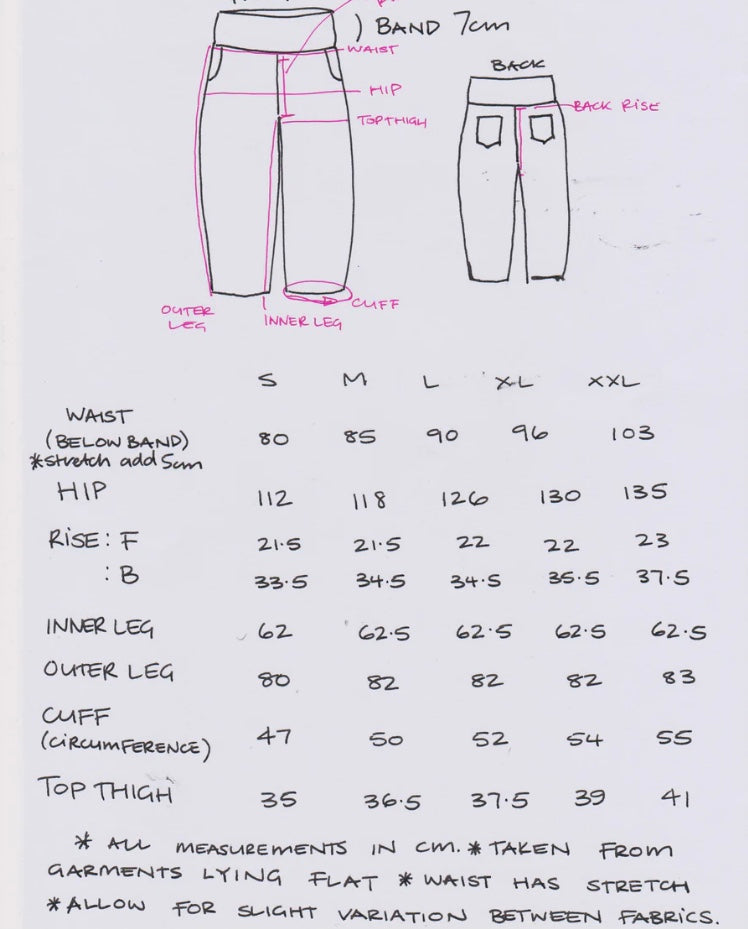 ) BAND 7cm
WAIST
BACK
HIP
BACK RISE
TOP THIGH
OUTER
LEG
INNER LEG
CUFF
S M L XL XXL
WAIST
(BELOW BAND) 80 85 90 96 103
*stretch add 5cm
HIP 112 118 126 130 135
RISE: F 21.5 21.5 22 22 23
: B 33.5 34.5 34.5 35.5 37.5
INNER LEG 62 62.5 62.5 62.5 62.5
OUTER LEG 80 82 82 82 83
CUFF
(CIRCUMFERENCE) 47 50 52 54 55
TOP THIGH 35 36.5 37.5 39 41
* ALL MEASUREMENTS IN CM. * TAKEN FROM
GARMENTS LYING FLAT * WAIST HAS STRETCH
* ALLOW FOR SLIGHT VARIATION BETWEEN FABRICS.